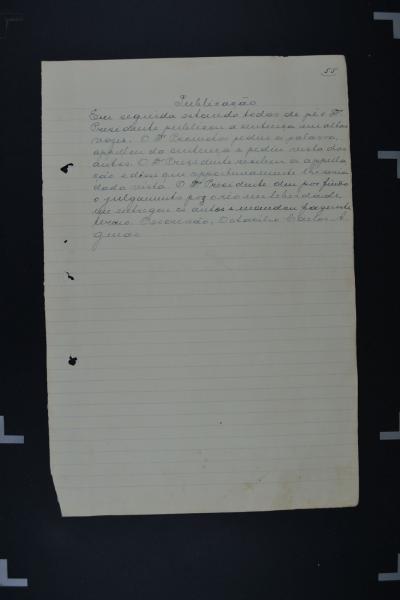 55
Publicação
Em seguida estando todos de pé o Dr.
Presidente publicou a sentença em altas
vozes. O Dr Promotor pediu a palavra,
appellou da sentença e pediu vista dos
autos. O Dr Presidente recebeu a appella
ção e disse que opportunamente lhe seria
dada vista. O Dr Presidente deu por findo
o julgamento poz o reo em liberdade
me entregou os autos e mandou
termo. Escrivão, Octacilio Carlos A.